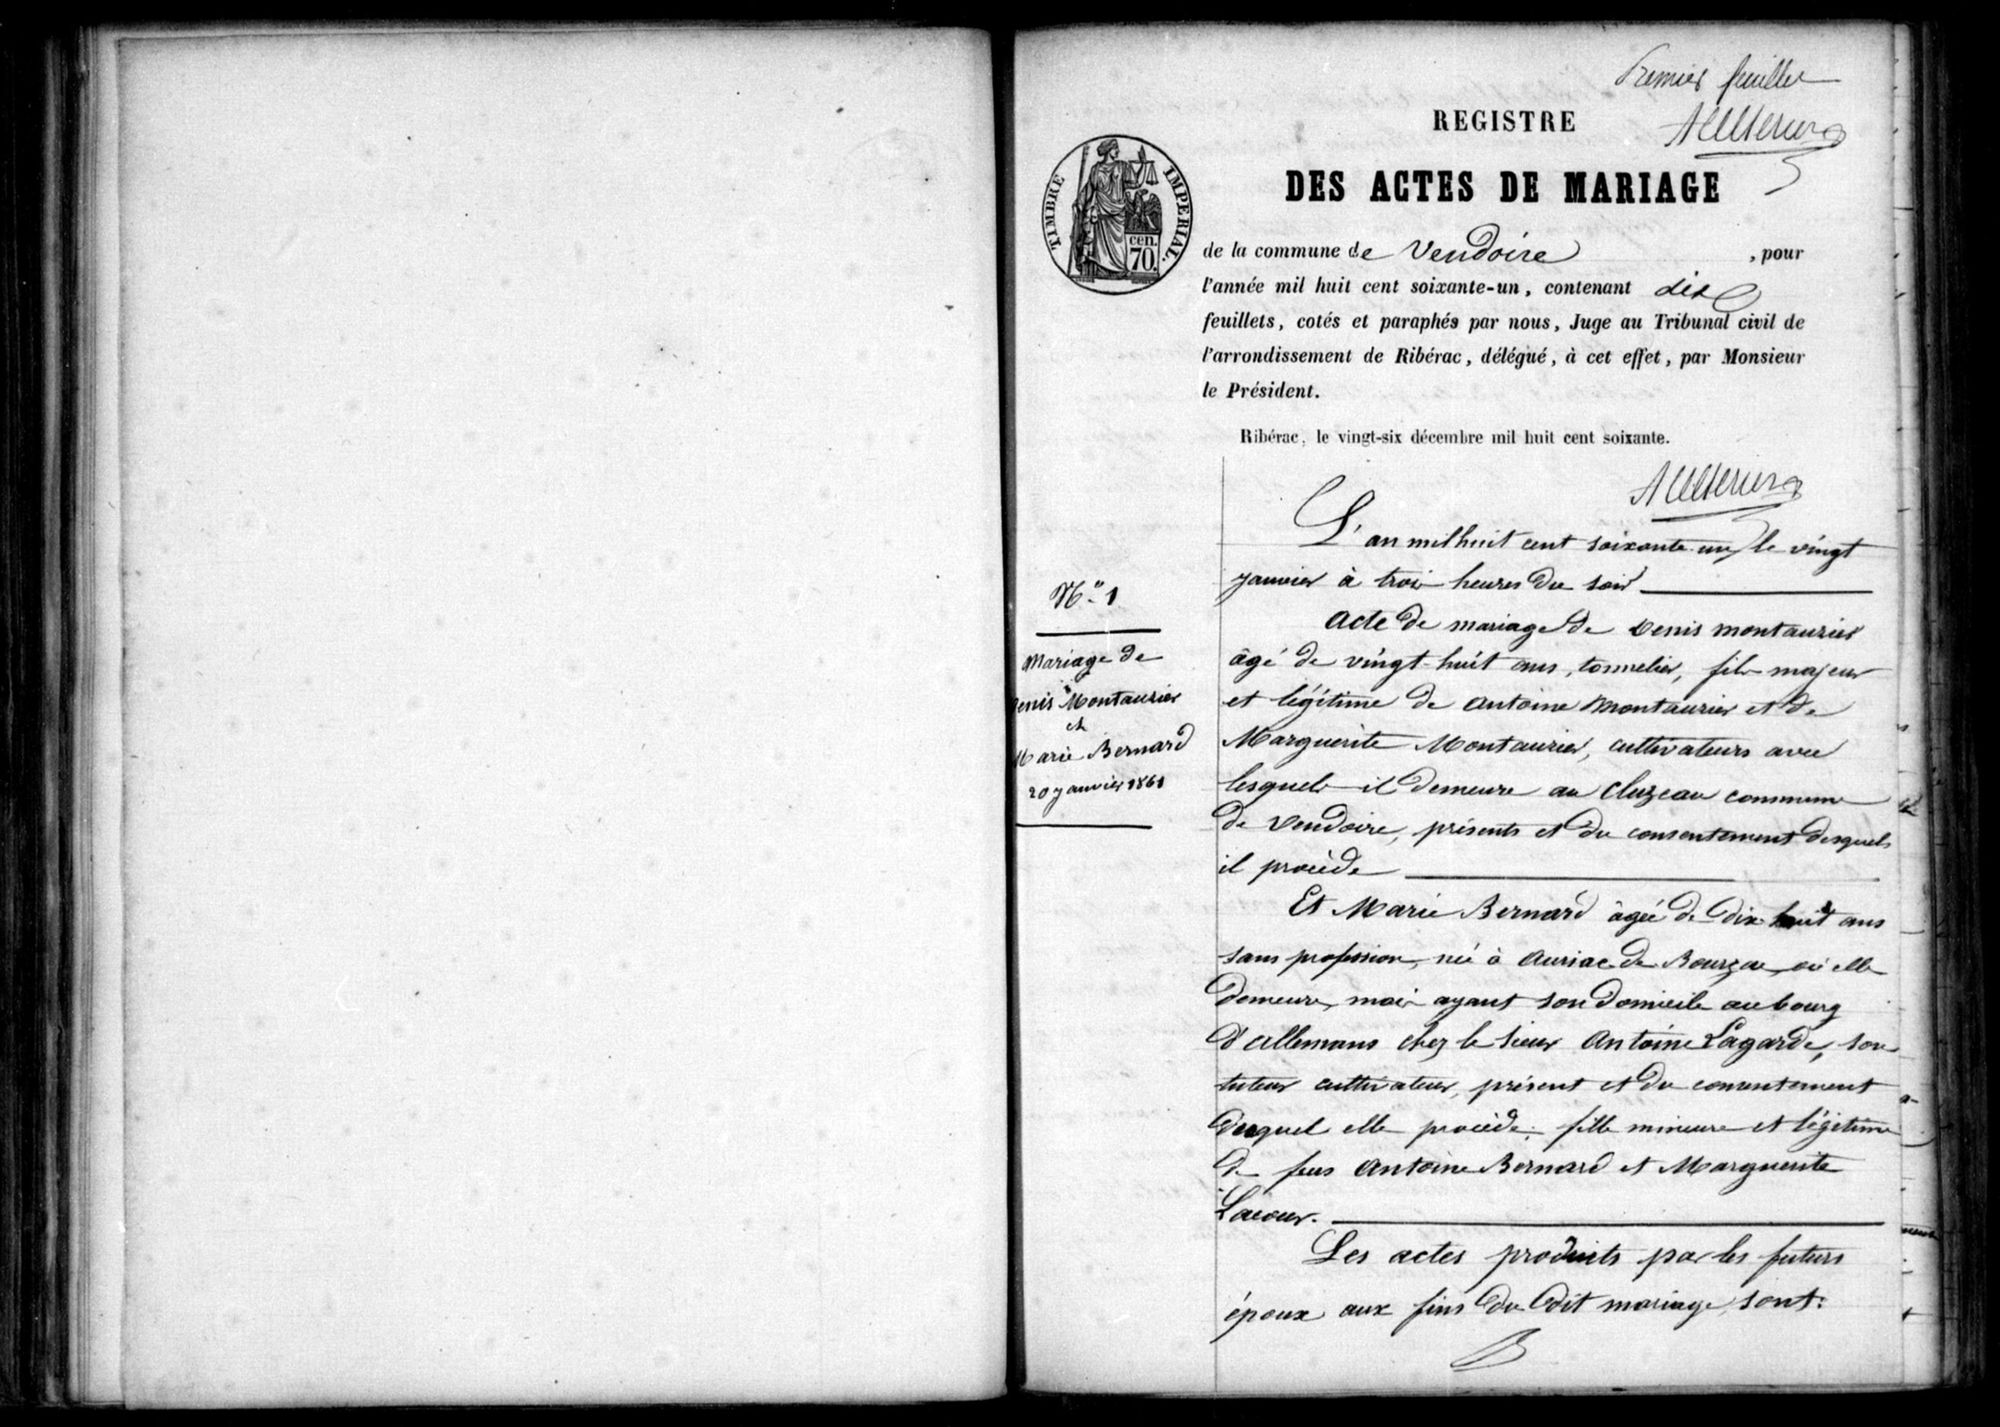 Premier feuillet
REGISTRE
DES ACTES DE MARIAGE
TIMBRE IMPERIAL.
cen.
70.
de la commune de Vendoire , pour
l'année mil huit cent soixante-un, contenant dix
feuillets, cotés et paraphés par nous, Juge au Tribunal civil de
l'arrondissement de Ribérac, délégué, à cet effet, par Monsieur
le Président.
Ribérac, le vingt-six décembre mil huit cent soixante.
N° 1
Mariage de
Denis Montaurier
et
Marie Bernard
20 janvier 1861
L'an mil huit cent soixante un, le vingt
janvier à trois heures du soir
Acte de mariage de Denis Montaurier
âgé de vingt-huit ans, tonnelier, fils majeur
et légitime de Antoine Montaurier et de
Marguerite Montaurier, cultivateurs avec
lesquels il demeure au Cluzeau commune
de Vendoire, présents et du consentement desquels
il procède
Et Marie Bernard âgée de dix huit ans
sans profession, née à Auriac de Bourzac, où elle
demeure, mais ayant son domicile au bourg
d'allemans chez le sieur Antoine Lagarde, son
tuteur cultivateur, présent et du consentement
duquel elle procède; fille mineure et légitime
de feus Antoine Bernard et Marguerite
Lacour.
Les actes produits par les futurs
époux aux fins du dit mariage, sont: